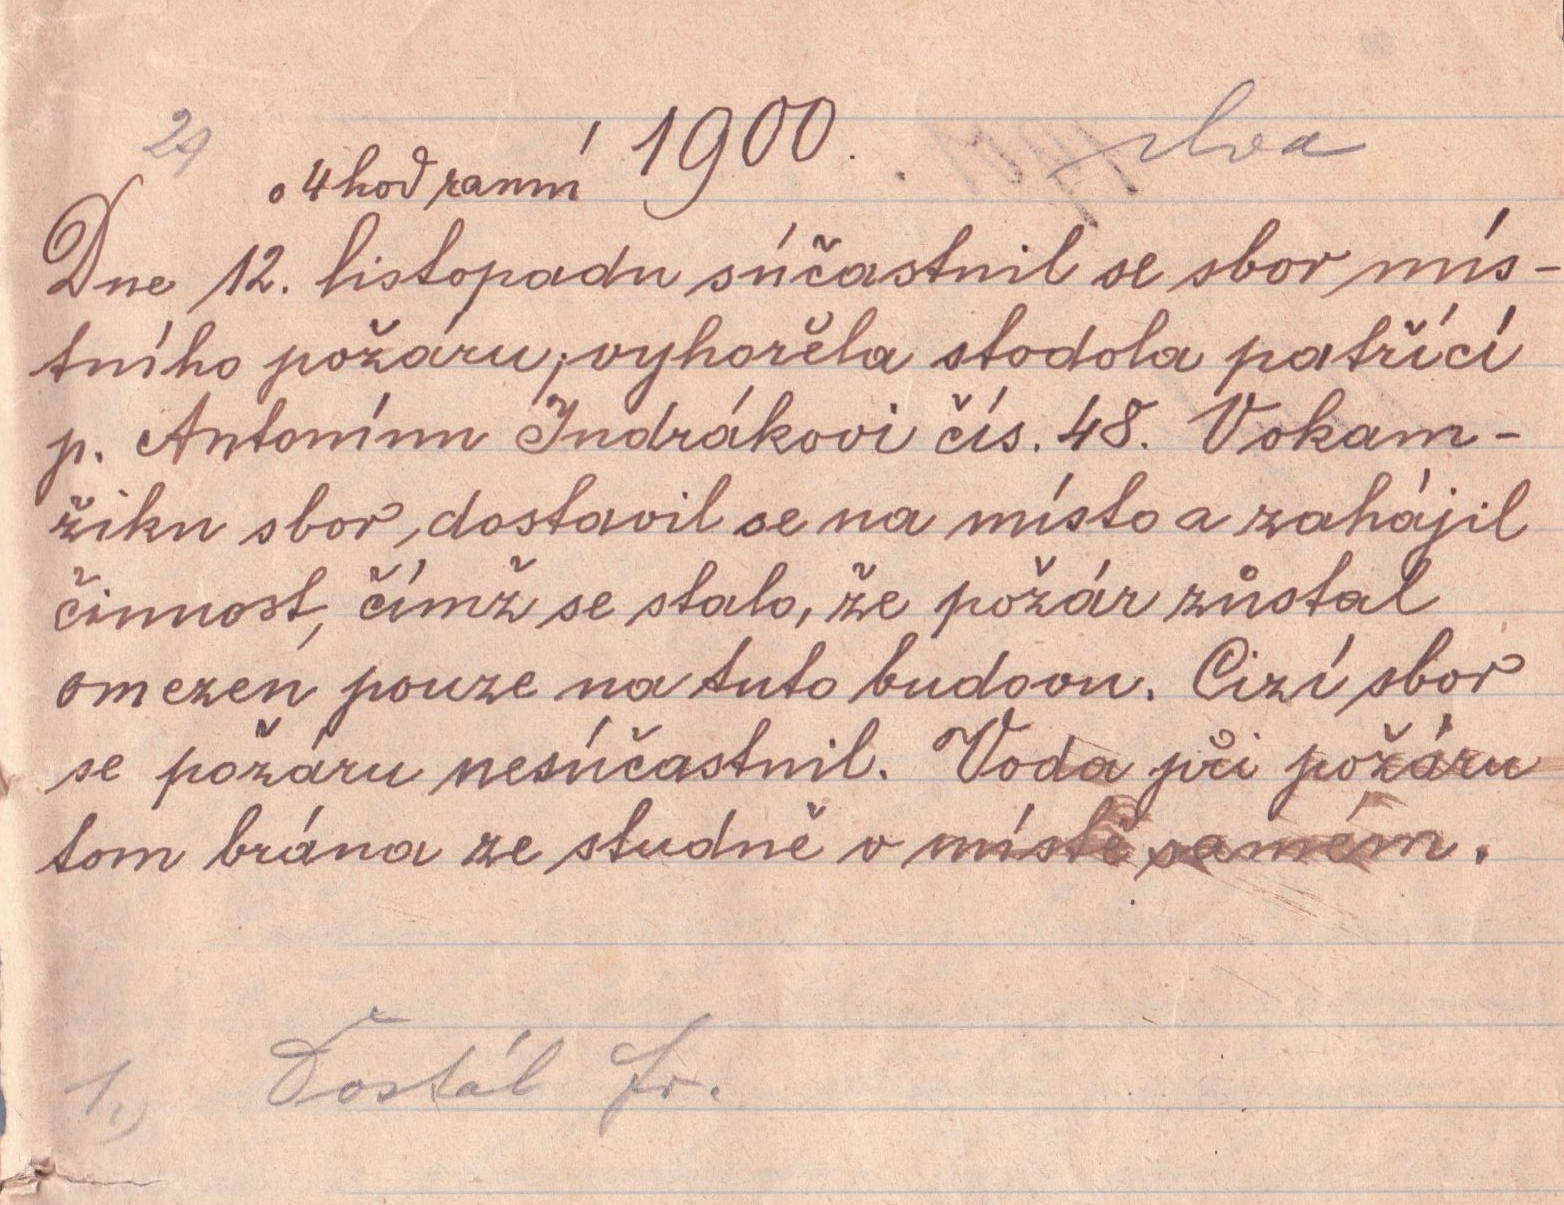 1900.
o 4 hod ranní
Dne 12. listopadu súčastnil se sbor mís-
tního požáru, vyhořela stodola patřící
p. Antonínu Jndrákovi čís. 48. V okam-
žiku sbor, dostavil se na místo a zahájil
činnost, čímž se stalo, že požár zůstal
omezen pouze na tuto budovu. Cizí sbor
se požáru nesúčastnil. Voda při požáru
tom brána ze studně v místě samém.
1.) Dostál Fr.